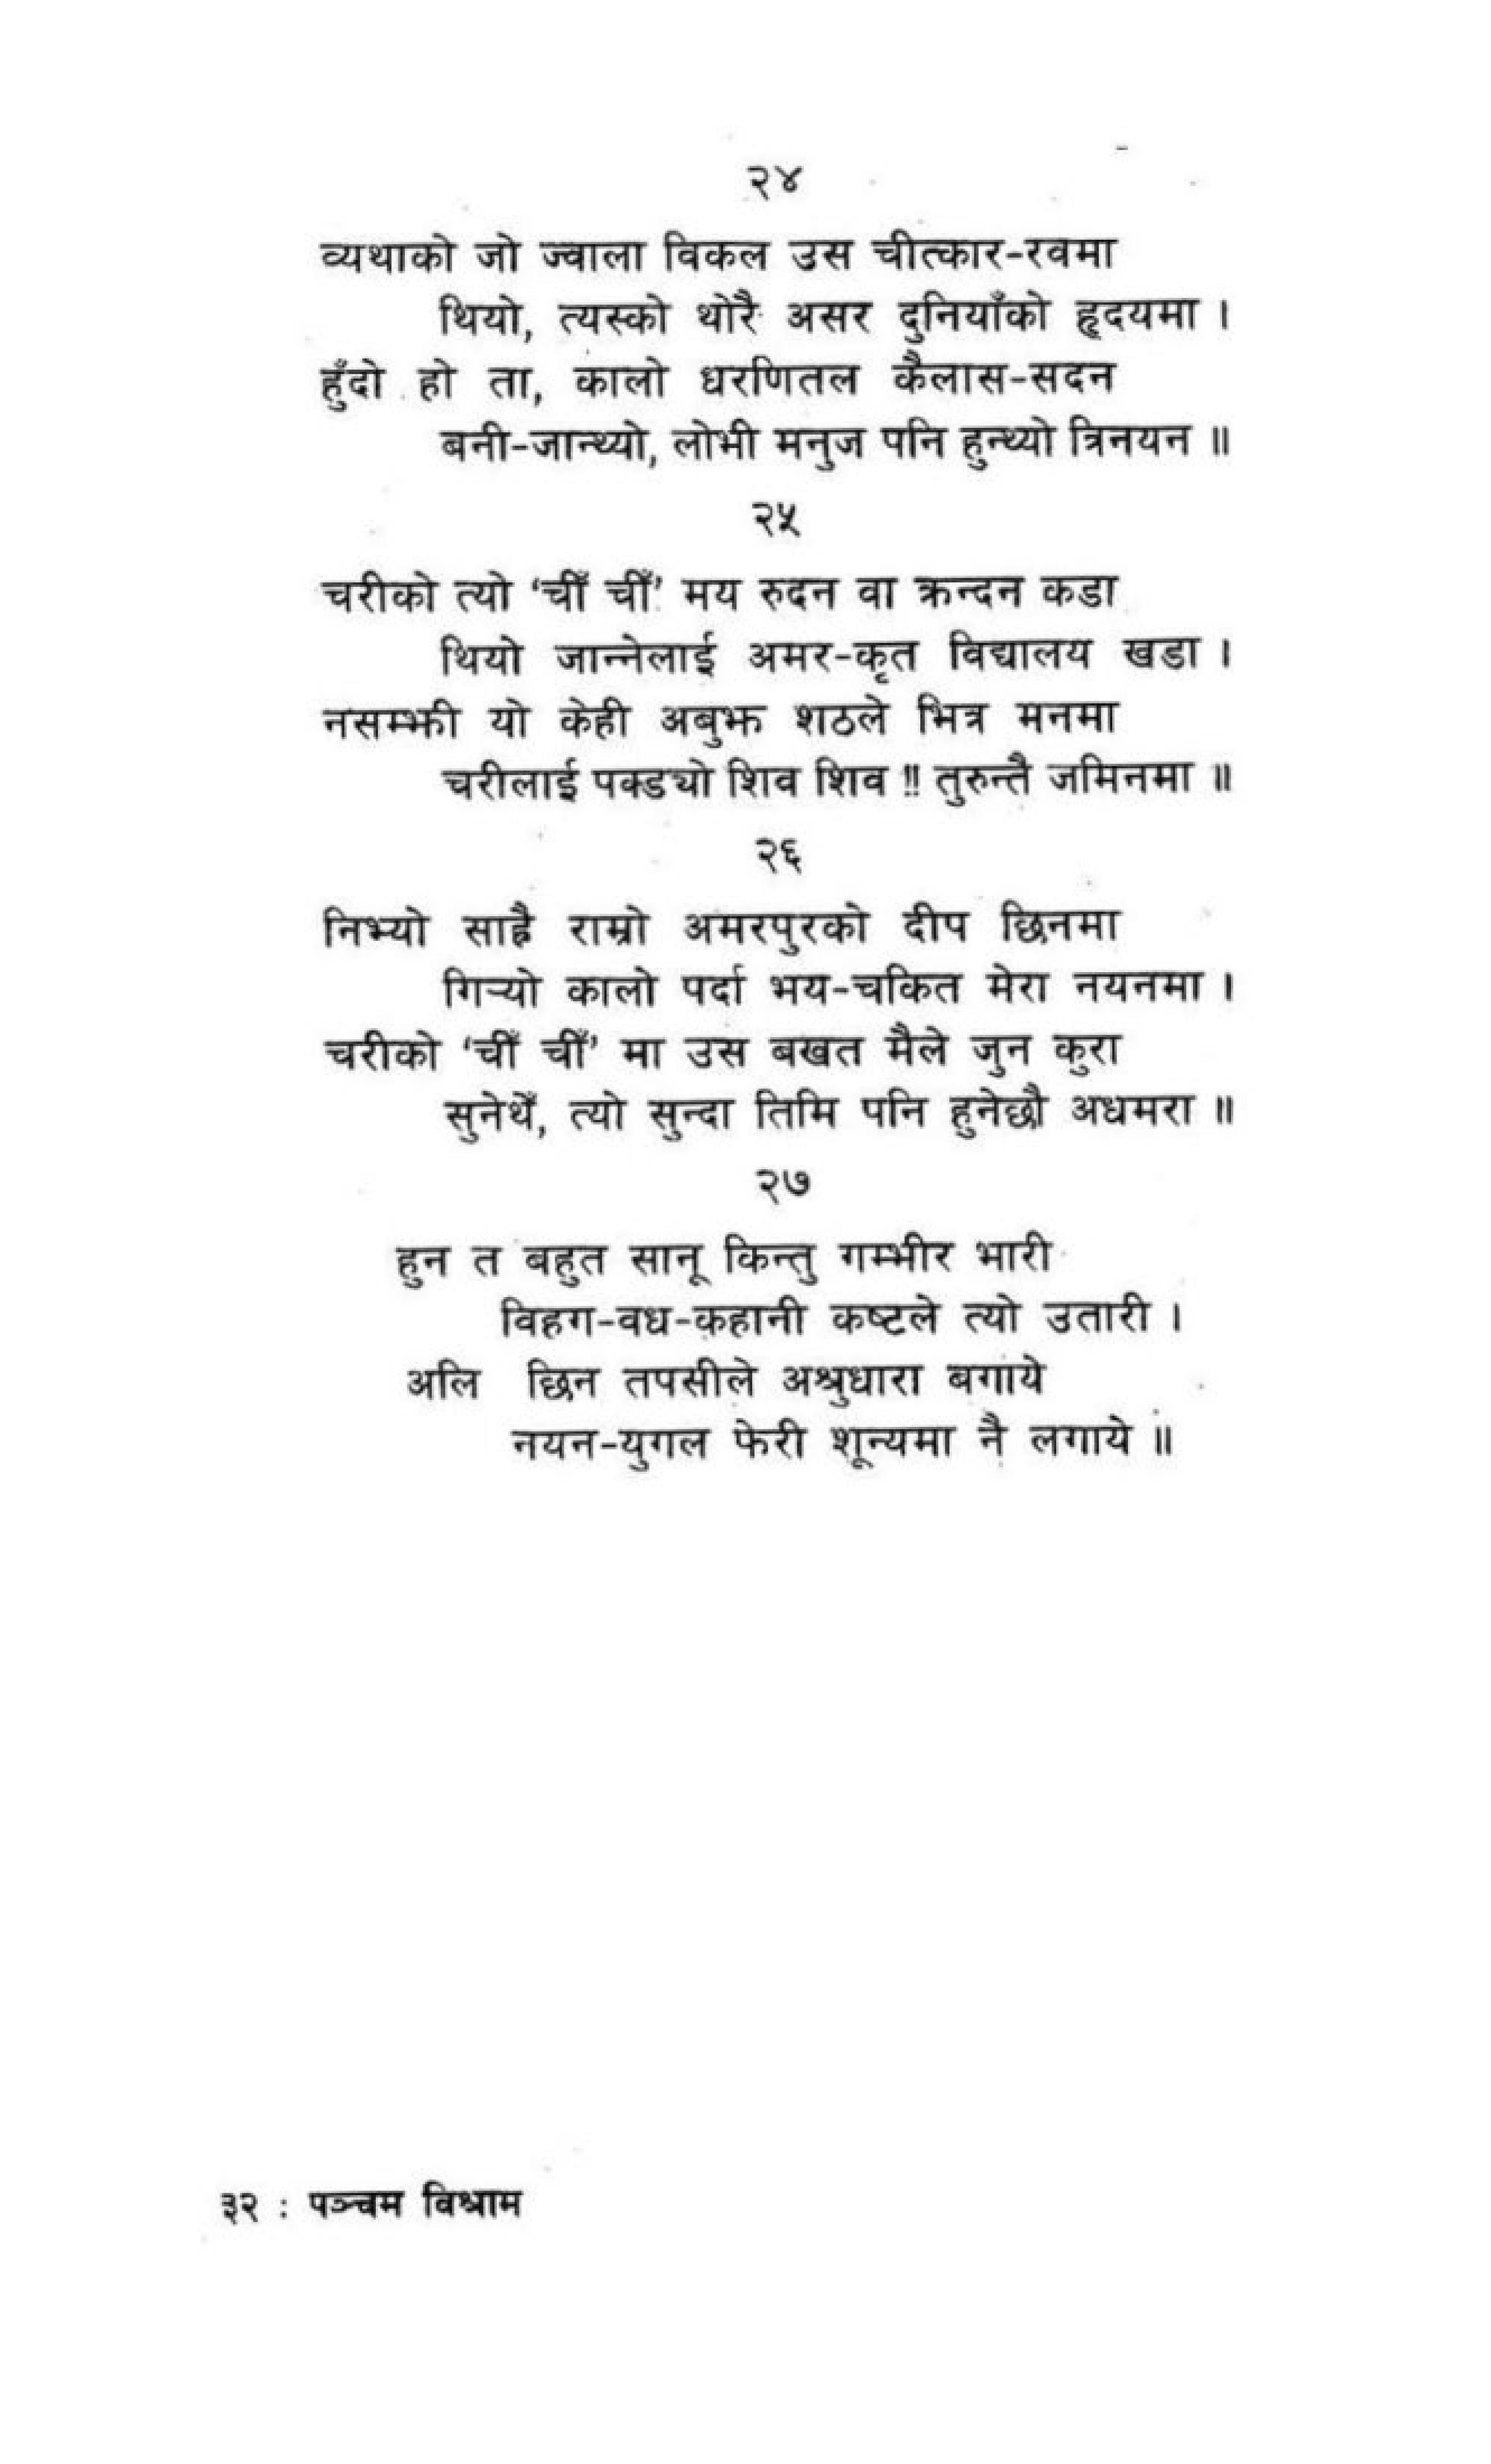 २४
व्यथाको जो ज्वाला विकल उस चीत्कार-रवमा
थियो, त्यस्को थोरै असर दुनियाँको हृदयमा ।
हुँदो हो ता, कालो धरणितल कैलास-सदन
बनी-जान्थ्यो, लोभी मनुज पनि हुन्थ्यो त्रिनयन ॥
२५
चरीको त्यो ‘चीँ चीँ’ मय रुदन वा क्रन्दन कडा
थियो जान्नेलाई अमर-कृत विद्यालय खडा ।
नसम्झी यो केही अबुझ शठले भित्र मनमा
चरीलाई पक्ड्यो शिव शिव !! तुरुन्तै जमिनमा ॥
२६
निभ्यो साह्रै राम्रो अमरपुरको दीप छिनमा
गिर्‍यो कालो पर्दा भय-चकित मेरा नयनमा ।
चरीको ‘चीँ चीँ’ मा उस बखत मैले जुन कुरा
सुनेथेँ, त्यो सुन्दा तिमि पनि हुनेछौ अधमरा ॥
२७
हुन त बहुत सानू किन्तु गम्भीर भारी
विहग-वध-कहानी कष्टले त्यो उतारी ।
अलि छिन तपसीले अश्रुधारा बगाये
नयन-युगल फेरी शून्यमा नै लगाये ॥
३२ : पञ्चम विश्राम